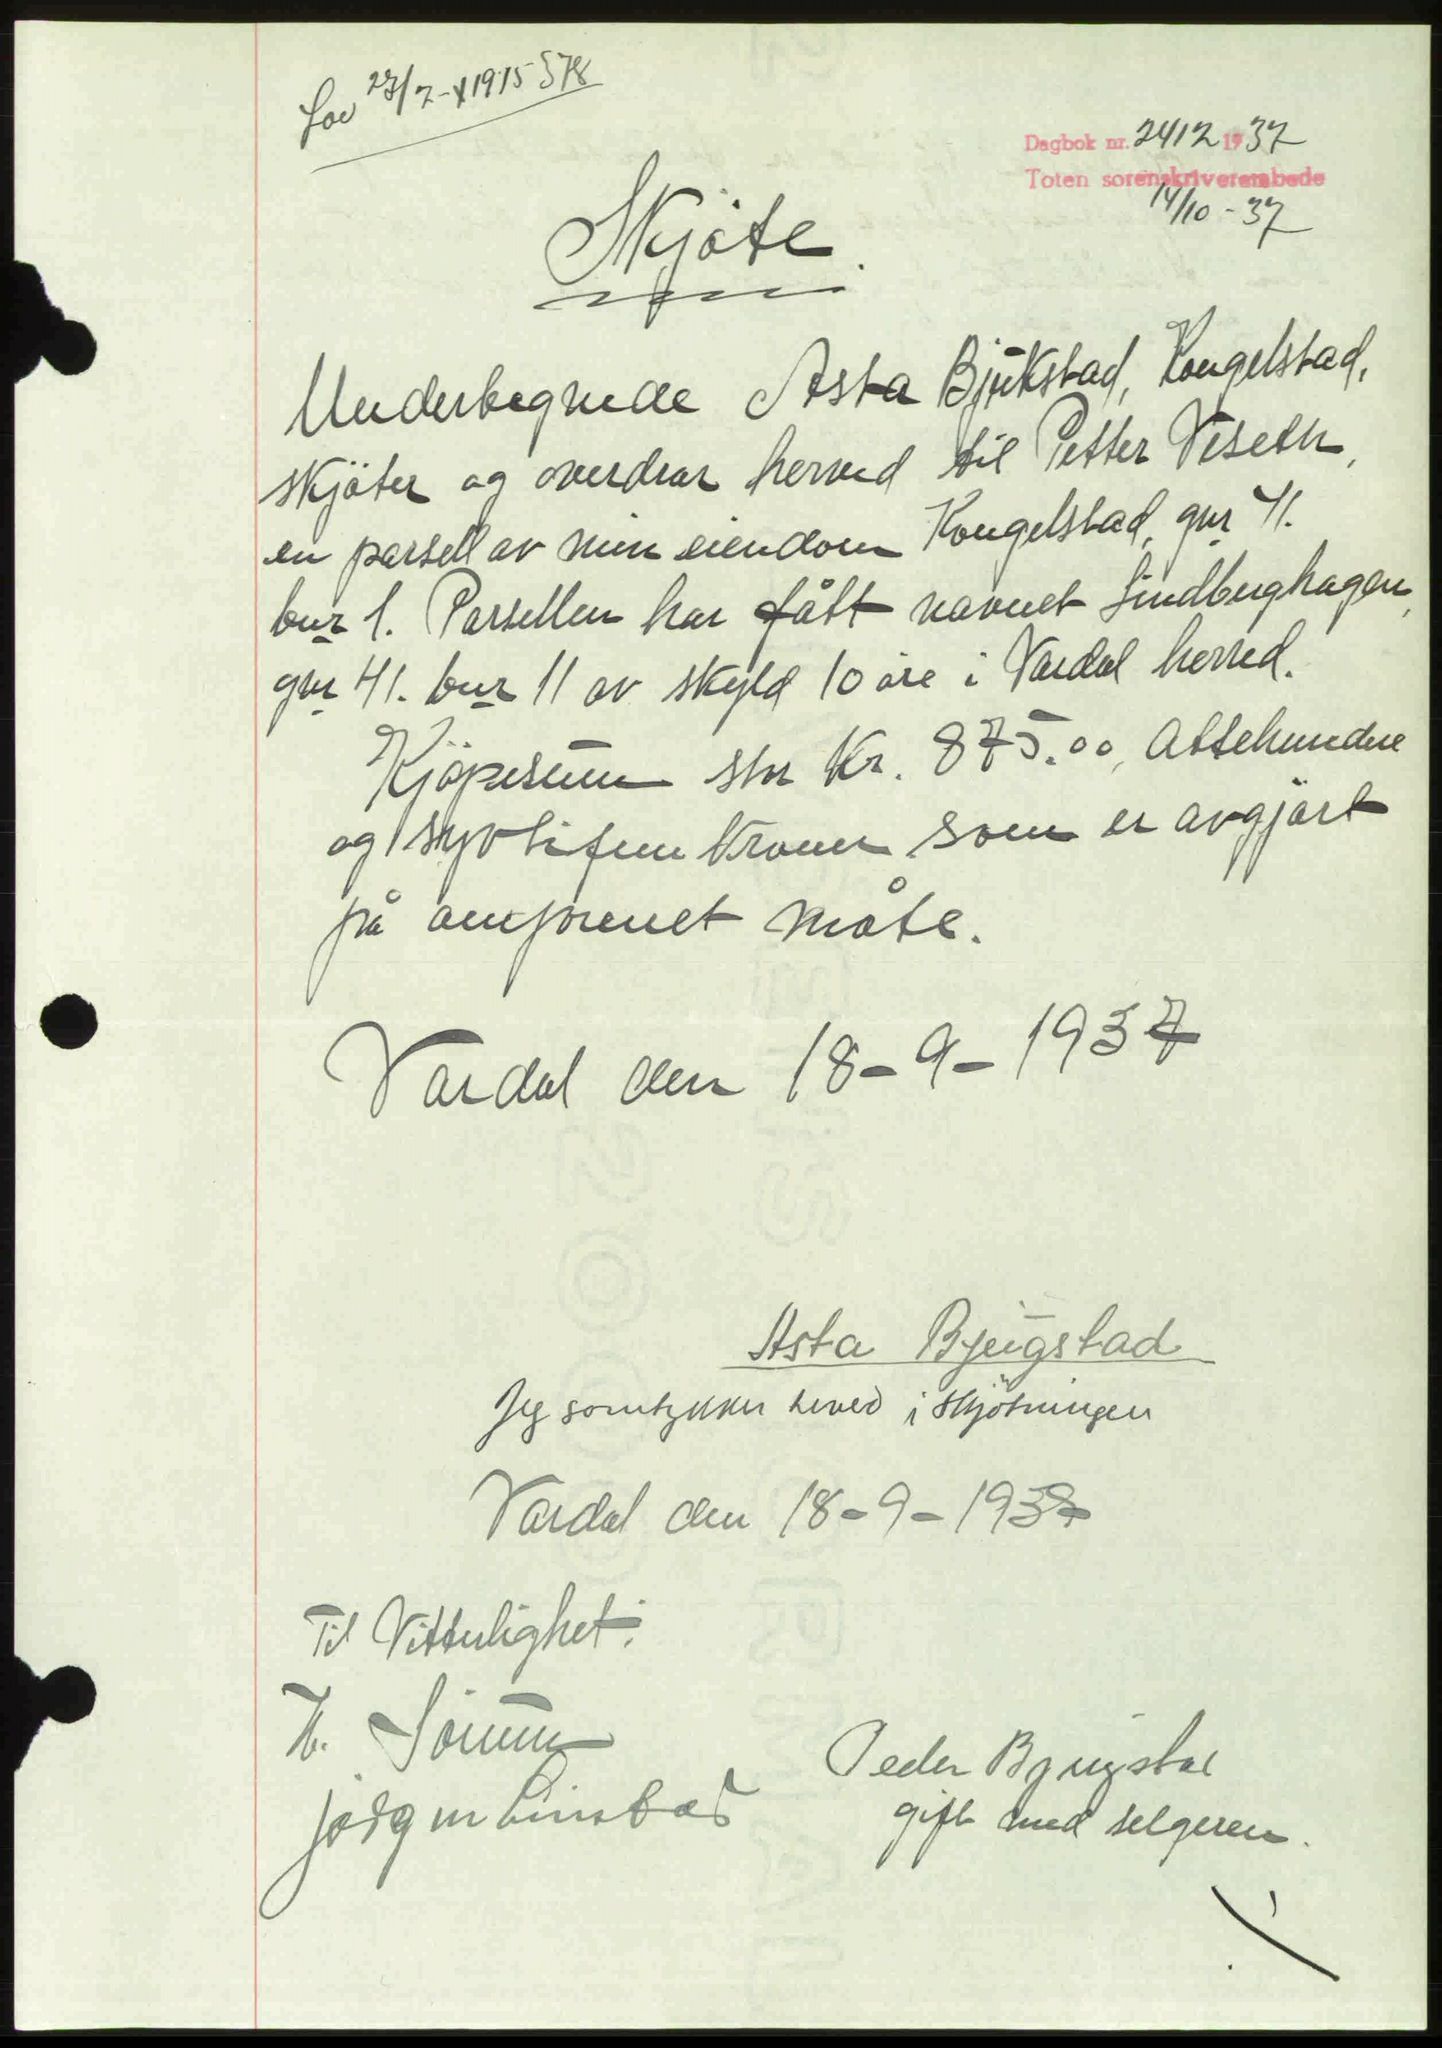 Lov 27/7-1915 § 78
Dagbok nr. 2412 1937
Toten sorenskriverembede
14/10-37
Skjöte.
Undertegnede Asta Bjükstad, Kongelstad,
skjöter og overdrar herved til Petter Veseth,
en parsell av min eiendom Kongelstad, gnr 41.
bnr 1. Parsellen har fått navnet Lindberghagen,
gnr 41. bnr 11 av skyld 10 öre i Vardal herred.
Kjöpesum stor Kr. 875.00, Attehundre
og syvtifem Kroner som er avgjört
på omforenet måte.
Vardal den 18-9-1937
Asta Bjugstad
Jeg samtykker herved i skjötningen
Vardal den 18-9-1937
Til Vitterlighet:
Peder Bjugstad
gift med selgeren.